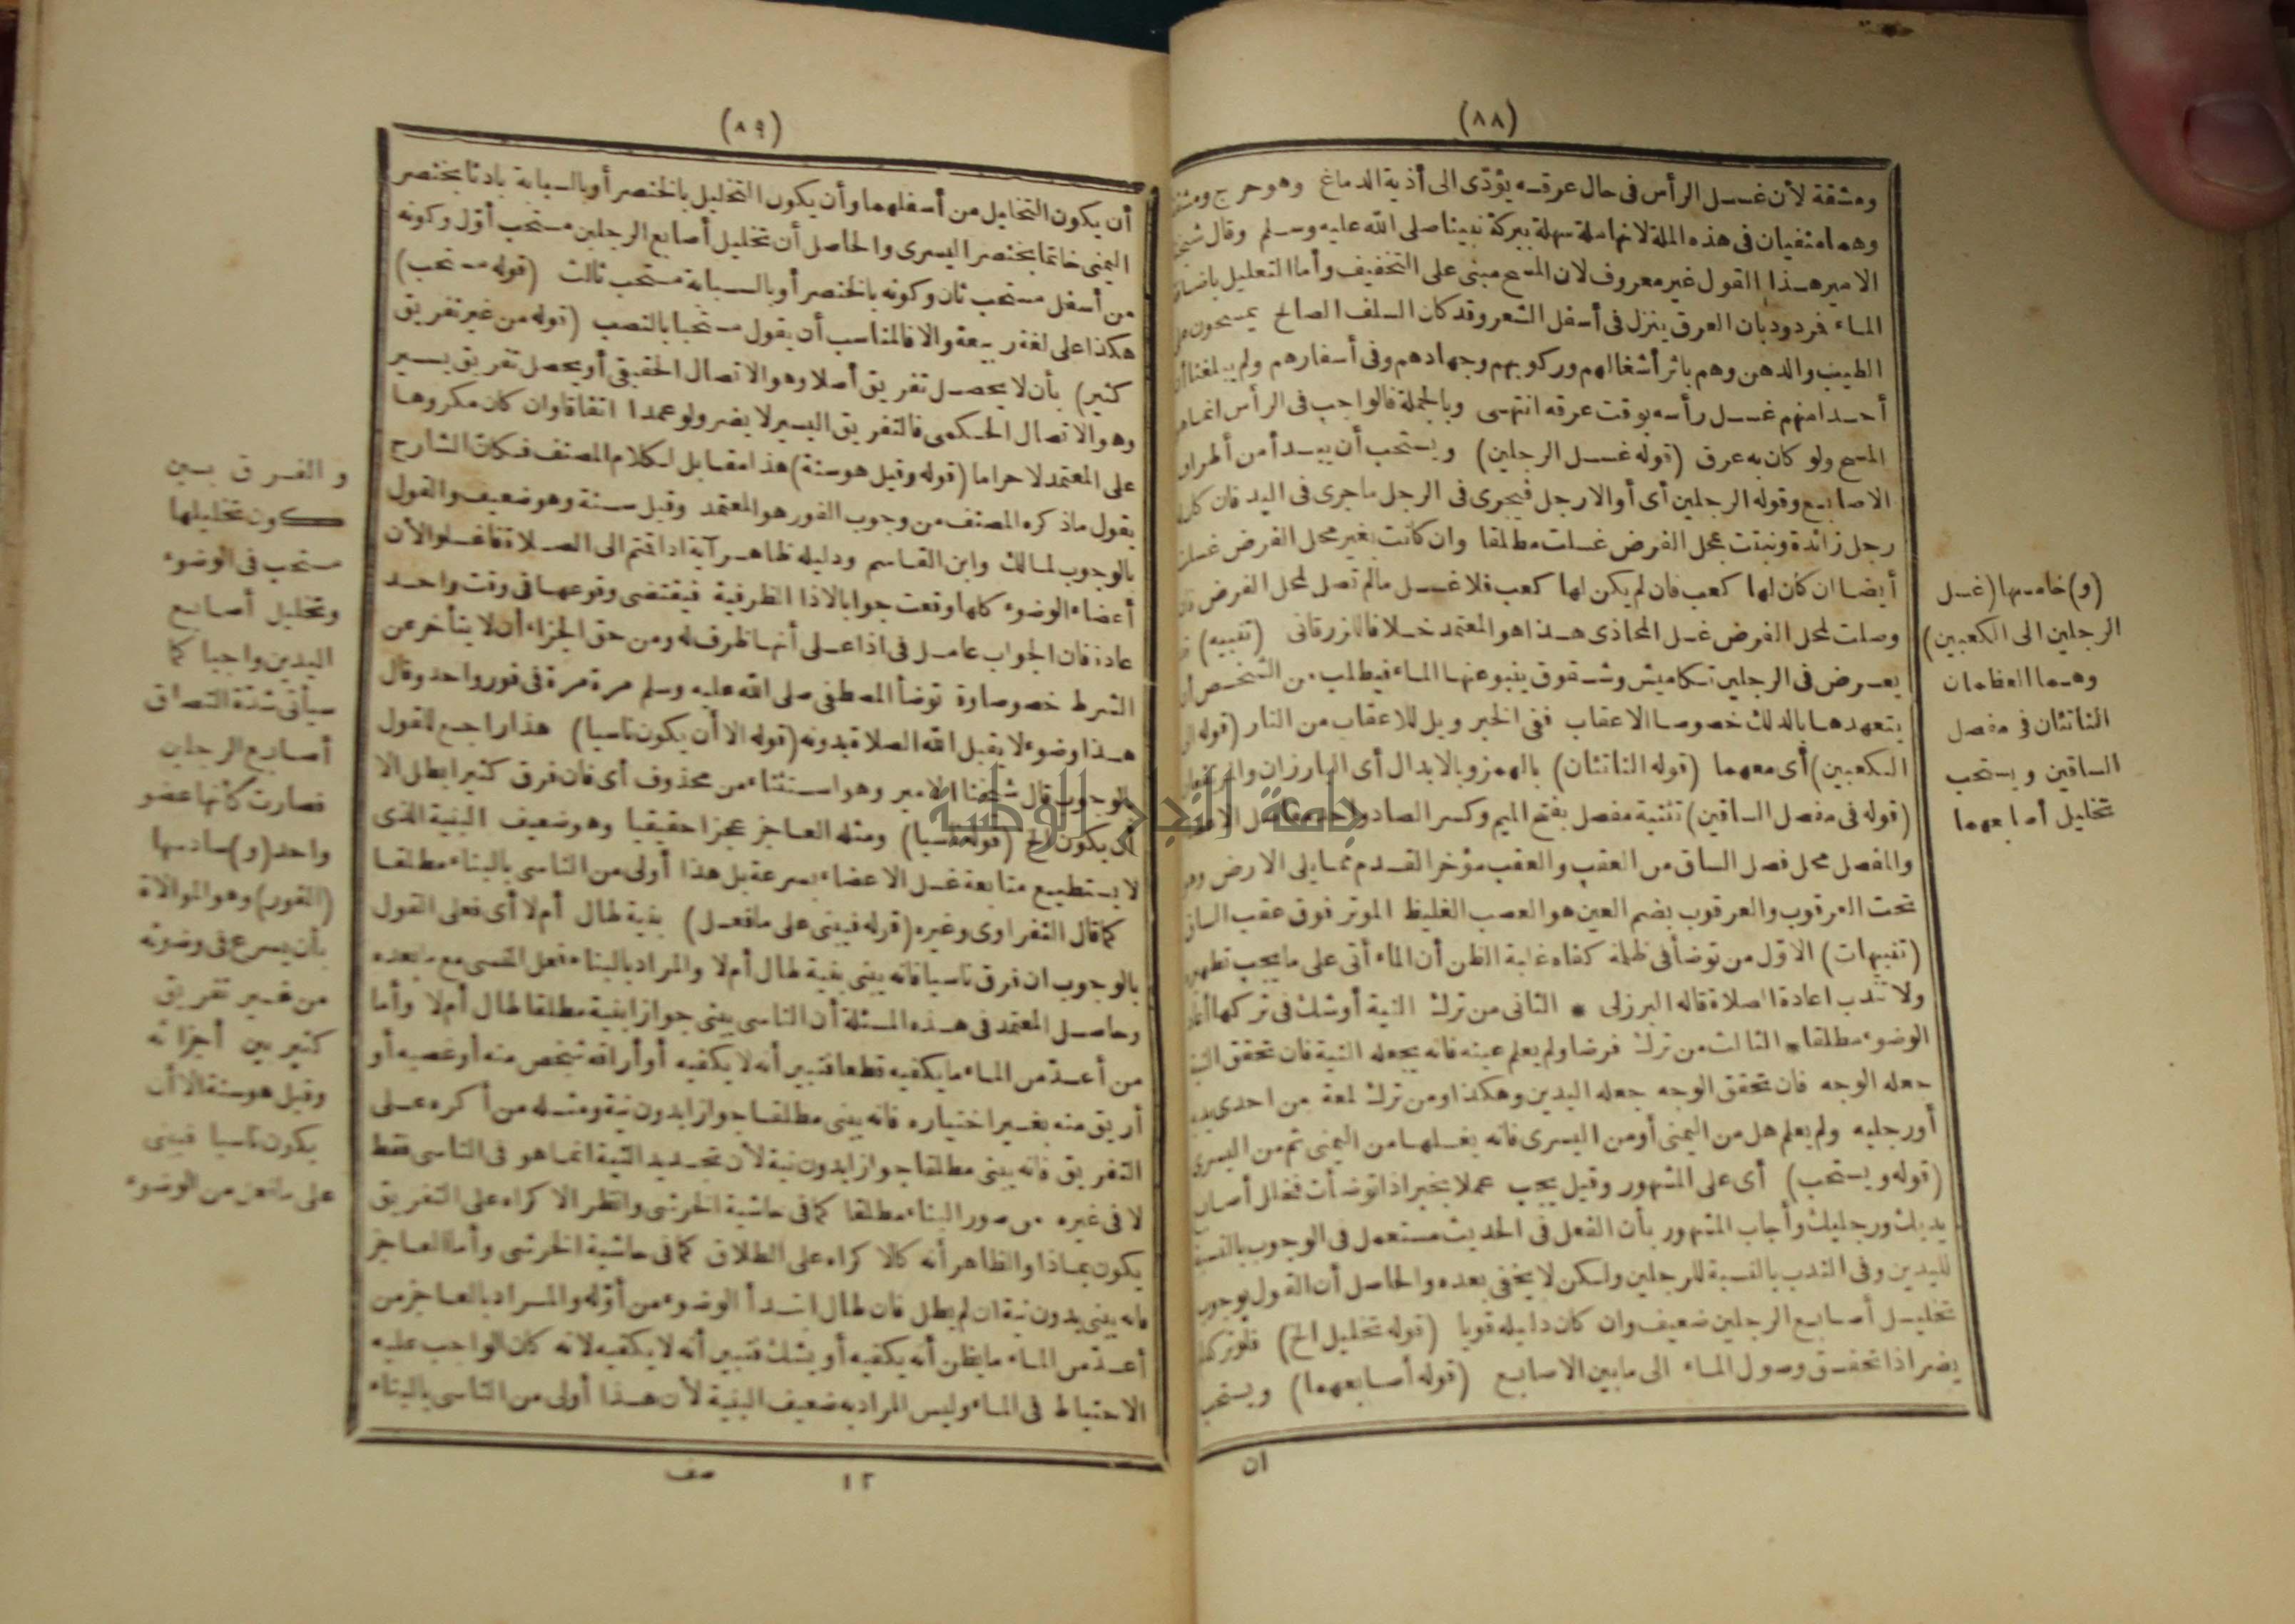 (٨٨)
ومشقة لأن غسل الرأس فى حال عرقه يؤدّى الى أذية الدماغ وهو حرج
وهما منفيان فى هذه الملة لانها ملة سهلة ببركة نبينا صلى الله عليه وسلم وقال
الامير هذا القول غير معروف لان المسح مبنى على التخفيف وأما التعليل
الماء فردود بان العرق ينزل فى أسفل الشعر وقد كان السلف الصالح يمسحون
الطيب والدهن وهم باثر أشغالهم وركوبهم وجهادهم وفى أسفارهم ولم يبلغنا أن
أحدا منهم غسل رأسه بوقت عرقه انتهى وبالجملة فالواجب فى الرأس انما هو
المسح ولو كان به عرق (قوله غسل الرجلين) ويستحب أن يبدأ من أطراف
الاصابع وقوله الرجلين أى أو الارجل فيجرى فى الرجل ماجرى فى اليد فان كان
رجل زائدة ونبتت بمحل الفرض غسلت مطلقا وان كانت بغير محل الفرض غسلت
أيضا ان كان لها كعب فان لم يكن لها كعب فلا غسل مالم تصل لمحل الفرض فان
وصلت لمحل الفرض غسل المحاذى هذا هو المعتمد خلافا للزرقانى (تنبيه)
يعرض فى الرجلين تكاميش وشقوق ينبو عنها الماء فيطلب من الشخص أن
يتعهدها بالدلك خصوصا الاعقاب ففى الخبر ويل للاعقاب من النار (قوله الى
الكعبين) أى معهما (قوله الناتئان) بالهمز وبالابدال أى البارزان
(قوله فى مفصل الساقين) تثنية مفصل بفتح الميم وكسر الصاد
والمفصل محل فصل الساق من العقب والعقب مؤخر القدم مما يلى الارض وهو
تحت العرقوب والعرقوب بضم العين هو العصب الغليظ الموتر فوق عقب
(تنبيهات) الاوّل من توضأ فى ظلمة كفاه غلبة الظن أن الماء أتى على ما يجب تطهيره
ولا تندب اعادة الصلاة قاله البرزلى * الثانى من ترك النية أوشك فى تركها أعاد
الوضوء مطلقا * الثالث من ترك فرضا ولم يعلم عينه فانه يجعله النية فان تحقق النية
جعله الوجه فان تحقق الوجه جعله اليدين وهكذا ومن ترك لمعة من احدى يديه
أورجليه ولم يعلم هل من اليمنى أومن اليسرى فانه يغسلها من اليمنى ثم من اليسرى
(قوله ويستحب) أى على المشهور وقيل يجب عملا بخبر اذا توضأت فخلل أصابع
يديك ورجليك وأجاب المشهور بأن الفعل فى الحديث مستعمل فى الوجوب بالنسبة
لليدين وفى الندب بالنسبة للرجلين ولكن لا يخفى بعده والحاصل أن القول بوجوب
تخليل أصابع الرجلين ضعيف وان كان دليله قويا (قوله تخليل الخ) فلو تركه
يضر اذا تحقق وصول الماء الى مابين الاصابع (قوله أصابعهما) ويستحب
ان
(و) خامسها (غسل
الرجلين الى الكعبين)
وهما العظمان
الناتئان فى مفصل
الساقين ويستحب
تخليل أصابعهما
(٨٩)
أن يكون التخليل من أسفلهما وأن يكون التخليل بالخنصر أو بالسبابة بادئا بخنصر
اليمنى خاتما بخنصر اليسرى والحاصل أن تخليل أصابع الرجلين مستحب أوّل وكونه
من أسفل مستحب ثان وكونه بالخنصر أو بالسبابة مستحب ثالث (قوله مستحب)
هكذا على لغة ربيعة والا فالمناسب أن يقول مستحبا بالنصب (قوله من غير تفريق
كثير) بأن لا يحصل تفريق أصلا وهو الاتصال الحقيقى أو يحصل تفريق يسير
وهو الاتصال الحكمى فالتفريق اليسير لا يضر ولو عمدا اتفاقا وان كان مكروها
على المعتمد لا حراما (قوله وقيل هو سنة) هذا مقابل لكلام المصنف فكان الشارح
يقول ماذكره المصنف من وجوب الفور هو المعتمد وقيل سنة وهو ضعيف والقول
بالوجوب لمالك وابن القاسم ودليله ظاهر آية اذا قمتم الى الصلاة فاغسلوا لأن
أعضاء الوضوء كلها وقعت جوابا لاذا الظرفية فيقتضى وقوعها فى وقت واحد
عادة فان الجواب عامل فى اذا على أنها ظرف له ومن حق الجزاء أن لا يتأخر عن
الشرط خصوصا وقد توضأ المصطفى صلى الله عليه وسلم مرة مرة فى فور واحد وقال
هذا وضوء لا يقبل الله الصلاة بدونه (قوله الا أن يكون ناسيا) هذا راجع للقول
بالوجوب قال شيخنا الامير وهو استثناء من محذوف أى فان فرق كثيرا بطل الا
أن يكون الخ (قوله ناسيا) ومثله العاجز عجزا حقيقيا وهو ضعيف البنية الذى
لا يستطيع متابعة غسل الاعضاء بسرعة بل هذا أولى من الناسى بالبناء مطلقا
كما قال النفراوى وغيره (قوله فيبنى على مافعل) بنية طال أم لا أى فعلى القول
بالوجوب ان فرق ناسيا فانه يبنى بنية طال أم لا والمراد بالبناء فعل المنسى مع مابعده
وحاصل المعتمد فى هذه المسئلة أن الناسى يبنى جوازا بنية مطلقا طال أم لا وأما
من أعدّ من الماء مايكفيه قطعا فتبين أنه لا يكفيه أو أراقه شخص منه أو غصبه أو
أريق منه بغير اختياره فانه يبنى مطلقا جوازا بدون نية ومثله من أكره على
التفريق فانه يبنى مطلقا جوازا بدون نية لأن تجديد النية انما هو فى الناسى فقط
لا فى غيره من صور البناء مطلقا كما فى حاشية الخرشى وانظر الاكراه على التفريق
يكون بماذا والظاهر أنه كالاكراه على الطلاق كما فى حاشية الخرشى وأما العاجز
فانه يبنى بدون نية ان لم يطل فان طال ابتدأ الوضوء من أوّله والمراد بالعاجز من
أعدّ من الماء مايظن أنه يكفيه أو يشك فتبين أنه لا يكفيه لانه كان الواجب عليه
الاحتياط فى الماء وليس المراد به ضعيف البنية لأن هذا أولى من الناسى بالبناء
١٢ صف
والفرق بين
كون تخليلها
مستحب فى الوضوء
وتخليل أصابع
اليدين واجبا كما
سيأتى شدّة التصاق
أصابع الرجلين
فصارت كأنها عضو
واحد (و) سادسها
(الفور) وهو الموالاة
بأن يسرع فى وضوئه
من غير تفريق
كثير بين أجزائه
وقيل هو سنة الا أن
يكون ناسيا فيبنى
على مافعل من الوضوء
جامعة النجاح الوطنية